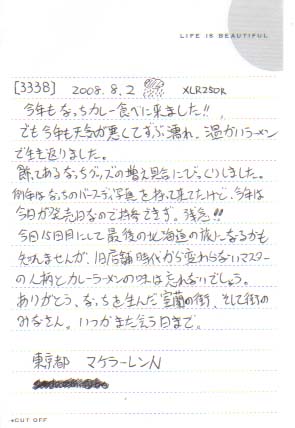 LIFE IS BEAUTIFUL
[3338] 2008.8.2 XLR250R
今年もなっちカレー食べに来ました!!
でも今年も天気が悪くてずぶ濡れ。温かいラーメン
で生き返りました。
飾ってあるなっちグッズの増え具合にびっくりしました。
例年はなっちのバースディ写真を持って来てたけど、今年は
今日が発売日なので持参できず。残念!!
今日15回目にして最後の北海道の旅になるかも
知れませんが、旧店舗時代から変わらないマスター
の人柄とカレーラーメンの味は忘れないでしょう。
ありがとう、なっちを生んだ室蘭の街、そして街の
みなさん。いつかまた会う日まで。
東京都 マケラーレンN
CUT OFF